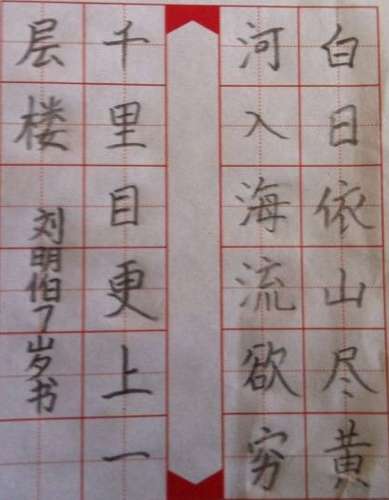 白日依山尽黄
河入海流欲穷
千里目更上一
层楼
刘明伯7岁书